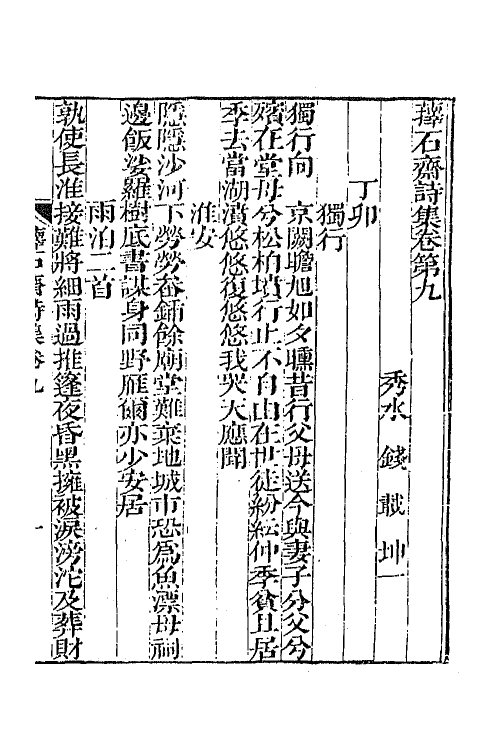 蘀石齋詩集卷第九
秀水 錢載 坤一
丁卯
獨行
獨行向 京闕瞻旭如夕曛昔行父母送今與妻子分父兮
殯在堂母兮松柏墳行止不自由在世徒紛紜仲季貧且居
季去當湖濆悠悠復悠悠我哭天應聞
淮安
隱隱沙河下勞勞畚鍤餘廟堂難棄地城市恐爲魚漂母祠
邊飯娑羅樹底書謀身同野雁爾亦少安居
雨泊二首
孰使長淮接難將細雨過推篷夜昏黑擁被淚滂沱及葬財
蘀石齋詩集卷九 一